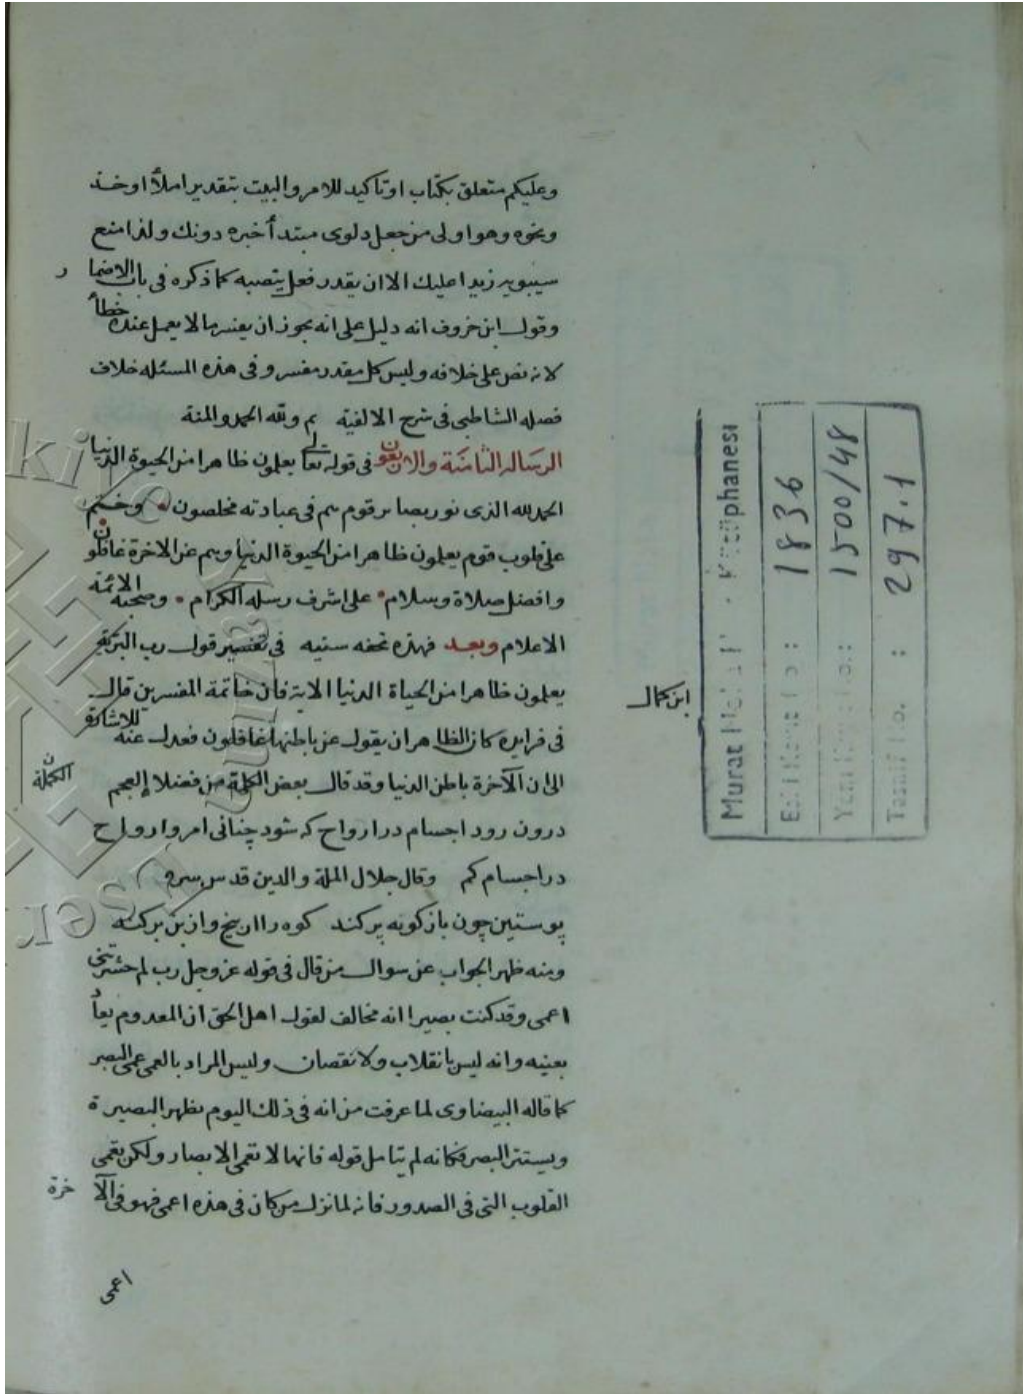 وعليكم متعلق بكتاب او تاكيد للامر والبيت بتقدير املأ او خذ
ونحوه وهو اولى من جعل دلوى مبتدأ خبره دونك ولذا منع
سيبويه زيدا عليك الا ان يقدر فعل ينصبه كما ذكره فى باب الاضمار
وقول ابن خروف انه دليل على انه يجوز ان يفسر ما لا يعمل عنده خطأ
لانه نص على خلافه وليس كل مقدر مفسر وفى هذه المسئله خلاف
فصله الشاطبى فى شرح الالفية تم ولله الحمد والمنة
الرساله الثامنة والاربعون فى قوله تعالى يعلمون ظاهرا من الحيوة الدنيا
الحمد لله الذى نور بصاير قوم هم فى عبادته مخلصون وختم
على قلوب قوم يعلمون ظاهرا من الحيوة الدنيا وهم عن الاخرة غافلون
وافضل صلاة وسلام على اشرف رسله الكرام وصحبه الائمة
الاعلام وبعد فهذه تحفه سنيه فى تفسير قول رب البرية
يعلمون ظاهرا من الحياة الدنيا الاية فان خاتمة المفسرين قال
ابن كمال
فى فرايده كان الظاهر ان يقول عن باطنها غافلون فعدل عنه للاشارة
الى ان الآخرة باطن الدنيا وقد قال بعض الكملة من فضلا العجم
الكملة ن
درون رود اجسام در ارواح كه شود چنانى امروز ارواح
در اجسام كم وقال جلال الملة والدين قدس سره
پوستين چون بازكونه بركند كوه را از بيخ واز بن بركند
ومنه ظهر الجواب عن سوال من قال فى قوله عز وجل رب لم حشرتنى
اعمى وقد كنت بصيرا انه مخالف لقول اهل الحق ان المعدوم يعاد
بعينه وانه ليس بانقلاب ولا نقصان وليس المراد بالعمى عمى البصر
كما قاله البيضاوى لما عرفت من انه فى ذلك اليوم يظهر البصيرة
ويستتر البصر فكانه لم يتامل قوله فانها لا تعمى الابصار ولكن تعمى
القلوب التى فى الصدور فانه لما نزل من كان فى هذه اعمى فهو فى الآخرة
اعمى
Murat Kütüphanesi
1836
1500/48
297.1